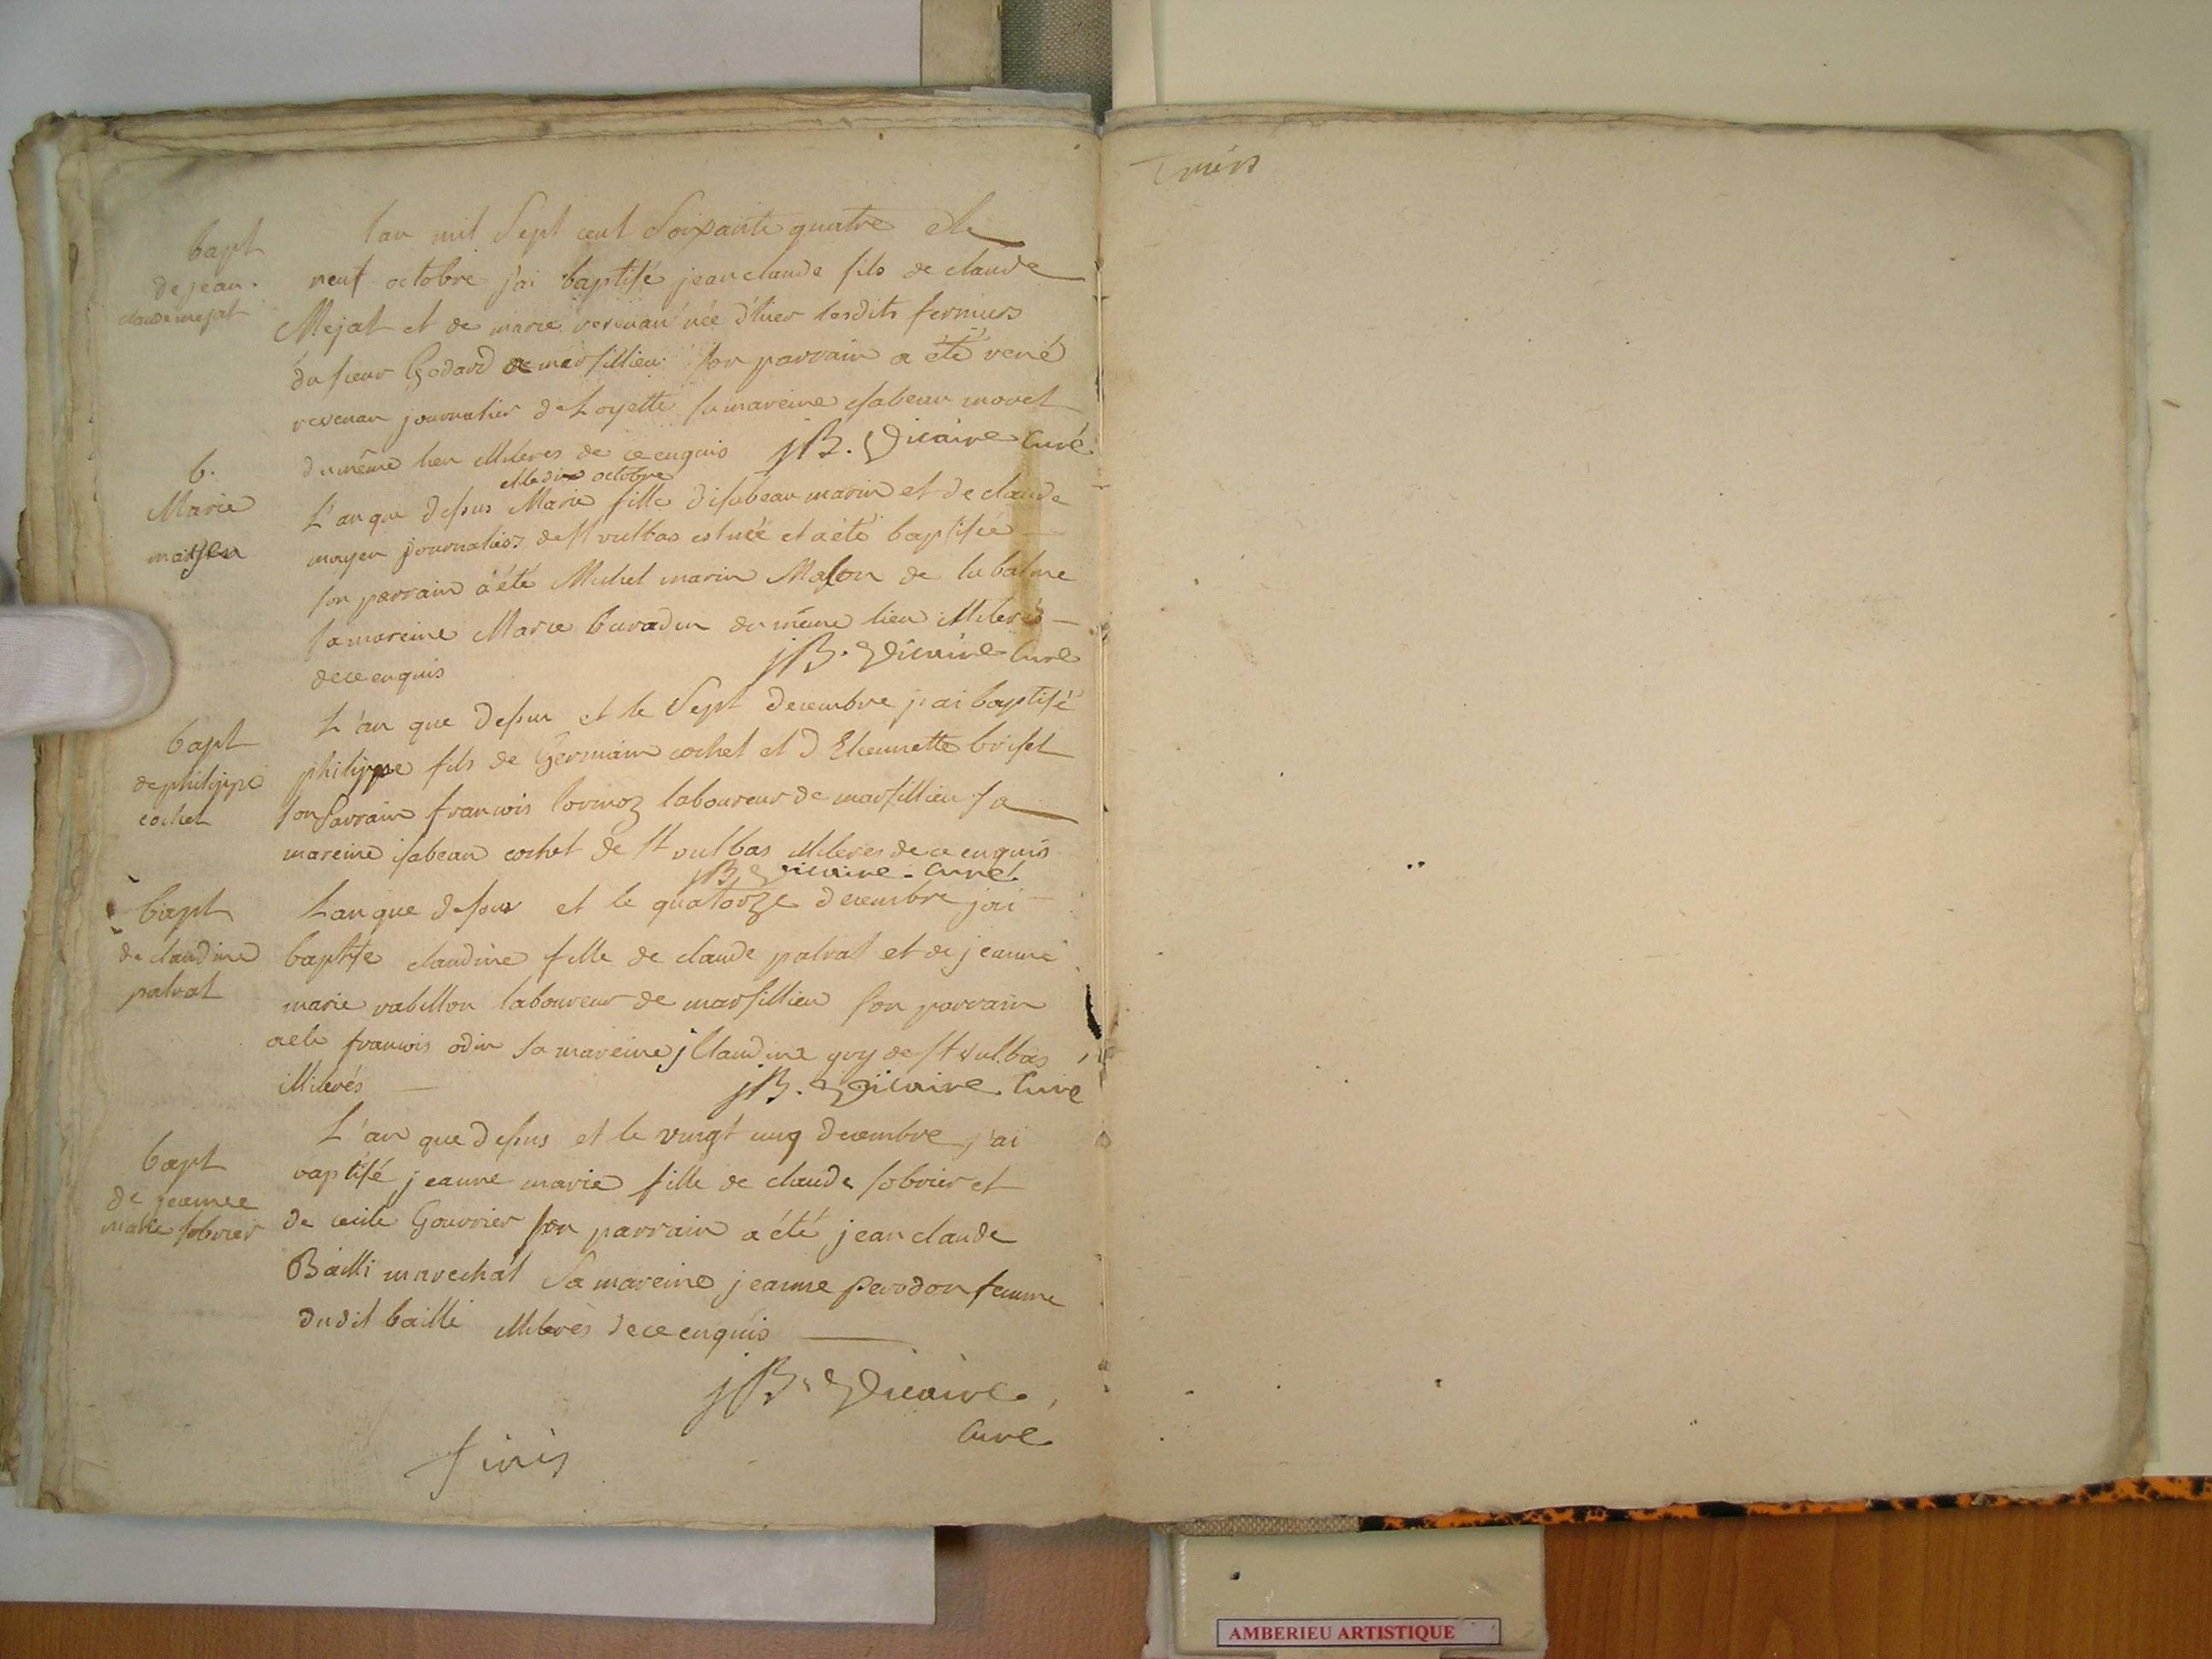 bapt
de jean
claude mejat
lan mil Sept cent Soixante quatre et le
neuf octobre j'ai baptisé jean claude fils de claude
Mejat et de marie revenan née d'hier lesdits fermiers
du sieur Godard de marsillieu son parrain a été rené
revenan journalier de Loyette sa mareine isabeau morel
du même lieu illiteres de ce enquis JB. Vicaire Curé
b.
Marie
mayen
et le dix octobre
L'an que dessus Marie fille d'isabeau marin et de claude
mayen journaliers de St vulbas est née et a été baptisée
son parrain a été Michel marin Masson de la balme
sa mareine Marie du même lieu illiterés
de ce enquis JB. Vicaire Curé
bapt
de philippe
cochet
L'an que dessus et le Sept decembre j'ai baptisé
philippe fils de Germain cochet et d'Etiennette brisset
son parrain francois laboureur de marsillieu sa
mareine isabeau cochet de St vulbas illiteres de ce enquis
JB Vicaire. Curé.
bapt
de claudine
palrat
Lan que dessus et le quatorze decembre jai
baptise claudine fille de claude palrat et de jeanne
marie rabillon laboureur de marsillieu son parrain
a ete francois odin sa mareine Claudine guy de St vulbas
illiterés JB. Vicaire. Curé
bapt
de jeanne
marie sobrier
L'an que dessus et le vingt cinq decembre j'ai
baptisé jeanne marie fille de claude sobrier et
de cecile Gourrier son parrain a été jean claude
Bailli marechal Sa mareine jeanne perodon femme
dudit bailli illiterés de ce enquis
JB. Vicaire,
Curé
finis
AMBERIEU ARTISTIQUE